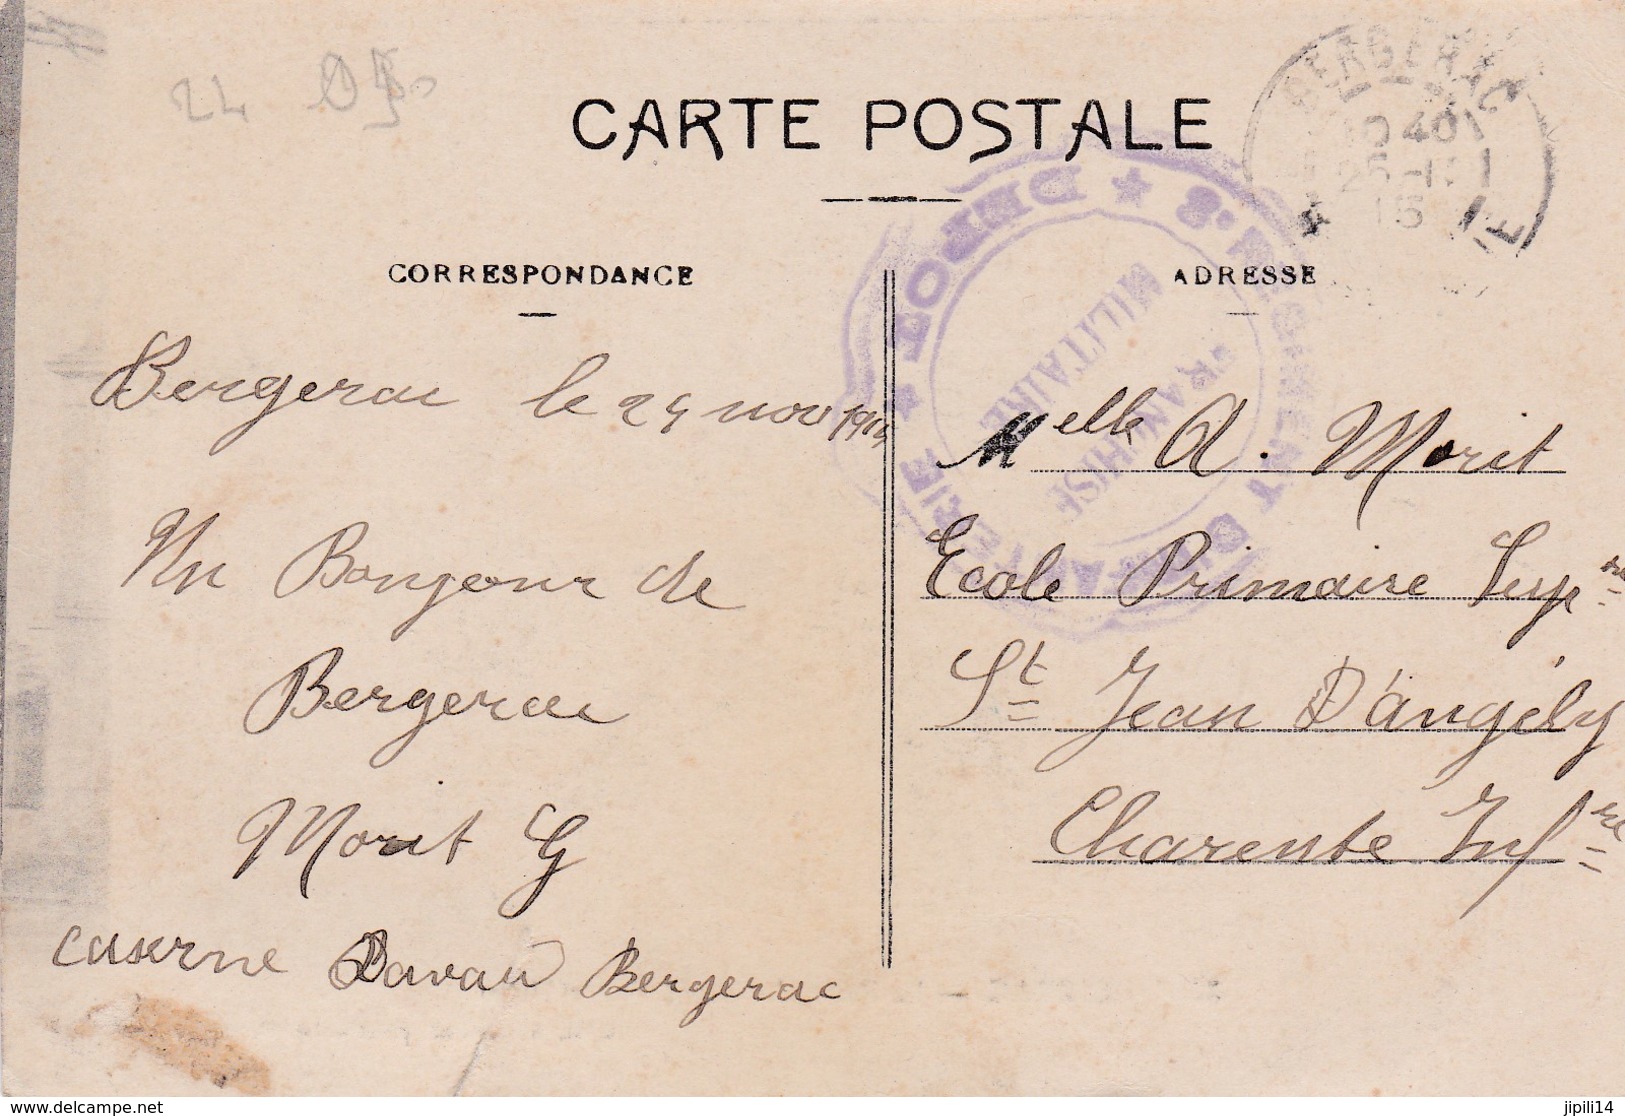 24
CARTE POSTALE
BERGERAC
10 40
25-11
15
★ DEPOT ★
MILITAIRE
FRANCHISE
CORRESPONDANCE
ADRESSE
Bergerac le 24 nov
Un Bonjour de
Bergerac
Morit G
caserne Davau Bergerac
Melle A. Morit
Ecole Primaire Supre
St Jean D'angély
Charente Infre
www.delcampe.net
jipili14